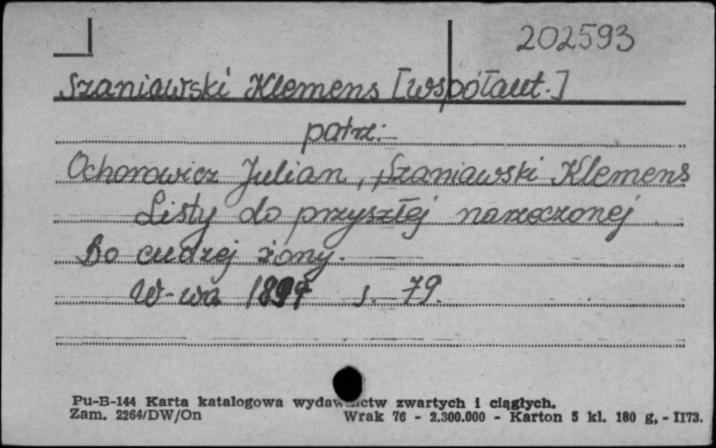 202593
Szaniawski Klemens [współaut.]
patrz:
Ochorowicz Julian, Szaniawski Klemens
Listy do przyszłej narzeczonej
Do cudzej żony.
W-wa s. 79.
Pu-B-144 Karta katalogowa zwartych i ciągłych.
Zam. 2264/DW/On Wrak 76 - 2.300.000 - Karton 5 kl. 180 g. - II73.